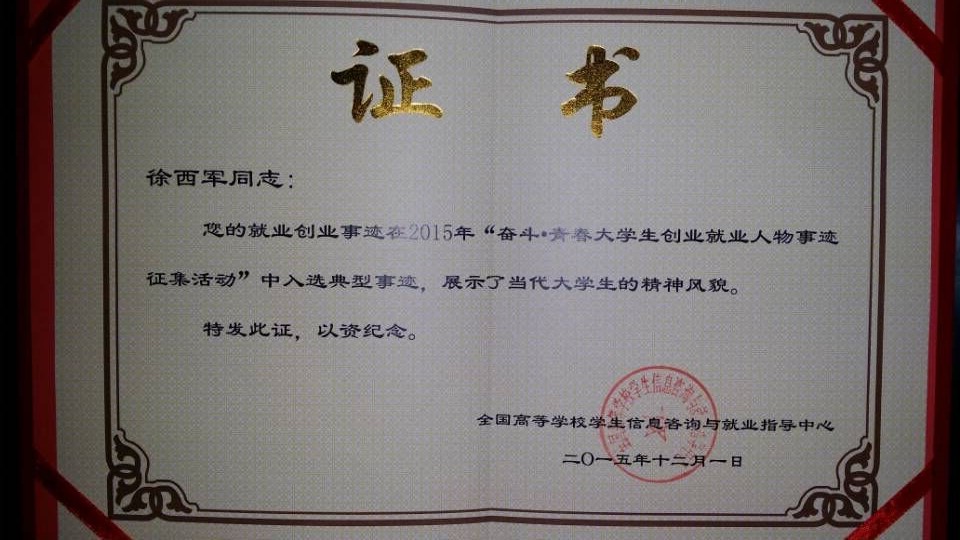 证书
徐西军同志：
您的就业创业事迹在2015年“奋斗•青春大学生创业就业人物事迹
征集活动”中入选典型事迹，展示了当代大学生的精神风貌。
特发此证，以资纪念。
全国高等学校学生信息咨询与就业指导中心
二〇一五年十二月一日